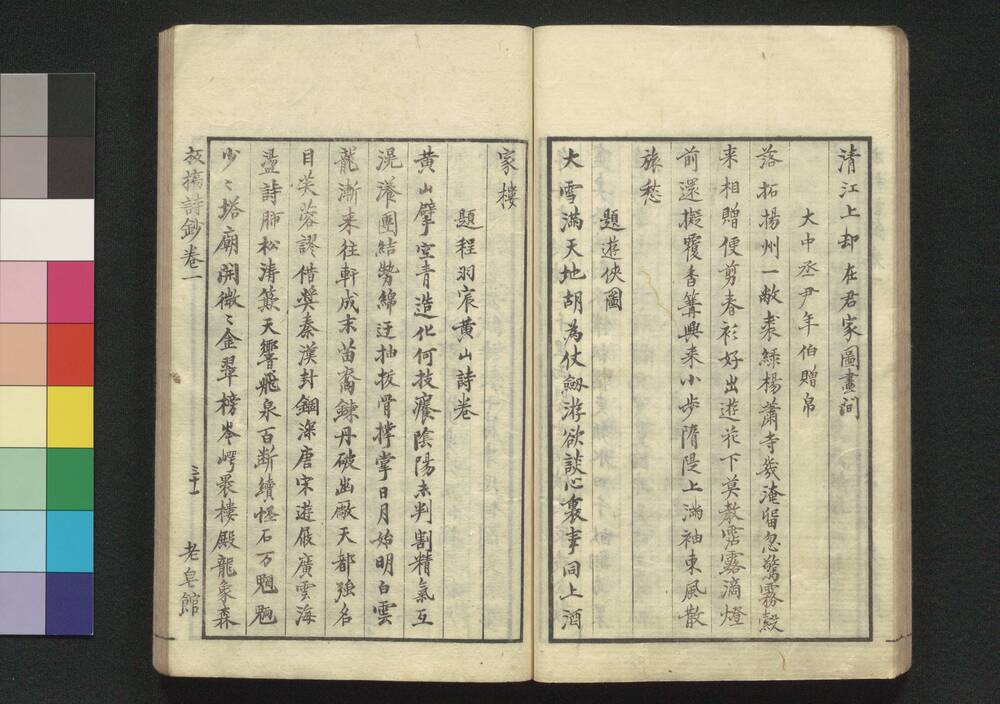 清江上却在君家圖畫間
大中丞尹年伯贈帛
落拓揚州一敝裘綠楊蕭寺幾淹留忽驚霧縠
来相贈便剪春衫好出遊花下莫教霑露滴燈
前還擬覆香篝興来小步隋隄上滿袖東風散
旅愁
題遊俠圖
大雪滿天地胡為仗劔游欲談心裏事同上酒
家樓
題程羽宸黄山詩卷
黄山擘空青造化何技癢陰陽未判割精氣互
滉瀁團結勢綿迂抽拔骨撑掌日月始明白雲
龍漸来往軒成末苗裔鍊丹破幽厰天都強名
目芙蓉謬借奬秦漢封錮深唐宋遊屐廣雲海
盪詩肺松濤簸天響飛泉百断續怪石万魍魎
吵〻塔廟開微〻金翠榜岑崿最樓殿龍象森
板橋詩鈔卷一
三十一
老皂館